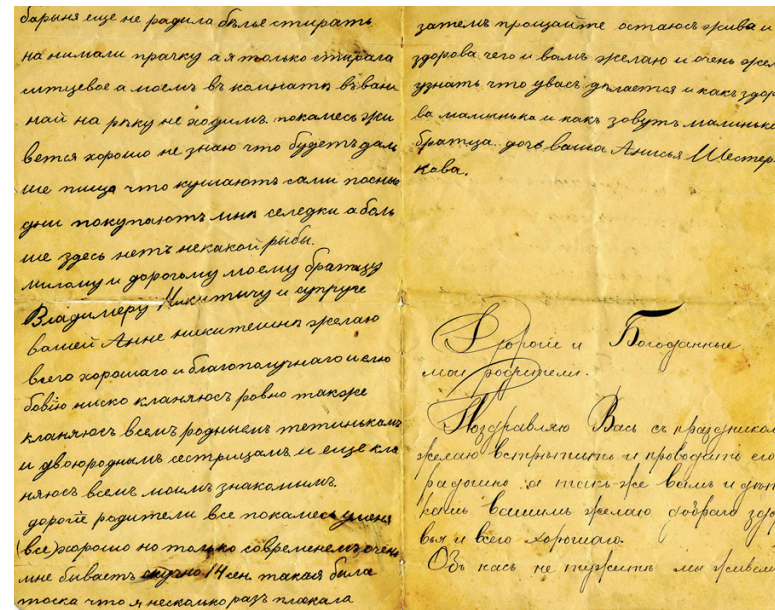 барыня еще не радила бѣлье стирать
на нимали прачку а я только стирала
ситцевое а моем въ комнатѣ въ ван
най на рѣку не ходимъ. покамесь жи
вется хорошо не знаю что будетъ дал
ше пища что кушаютъ сами посныя
дни покупаютъ мнѣ селедки а боль
ше здесь нетъ некакой рыбы.
милому и дорогому моему братцу
Владимеру Никитичу и супруге
вашей Анне никитешнѣ желаю
всего хорошаго и благополучнаго и слю
бовію ниско кланяюсъ ровно также
кланяюсъ всемъ роднымъ тетинькамъ
и двоюроднымъ сестрицамъ и еще кла
няюсъ всемъ моимъ знакомымъ.
дорогіе родители все покамесь у меня
(все) хорошо но только современемъ очень
мне бываетъ скучно 14 сен. такая была
тоска что я несколько разъ плакала
затемъ прощайте остаюсъ жива и
здорова чего и вамъ желаю и очень жел
узнать что у васъ дѣлается и какъ здор
ва малинька и какъ зовутъ малинька
братца. дочь ваша Анисья Шестер
кова.
Дорогіе и Богоданные
мои родители.
Поздравляю Васъ съ праздником
желаю встрѣтить и проводить его
радошно а такъ же вамъ и дѣт
камъ вашимъ желаю добраго здо
вья и всего хорошаго.
Объ насъ не тужить мы живем